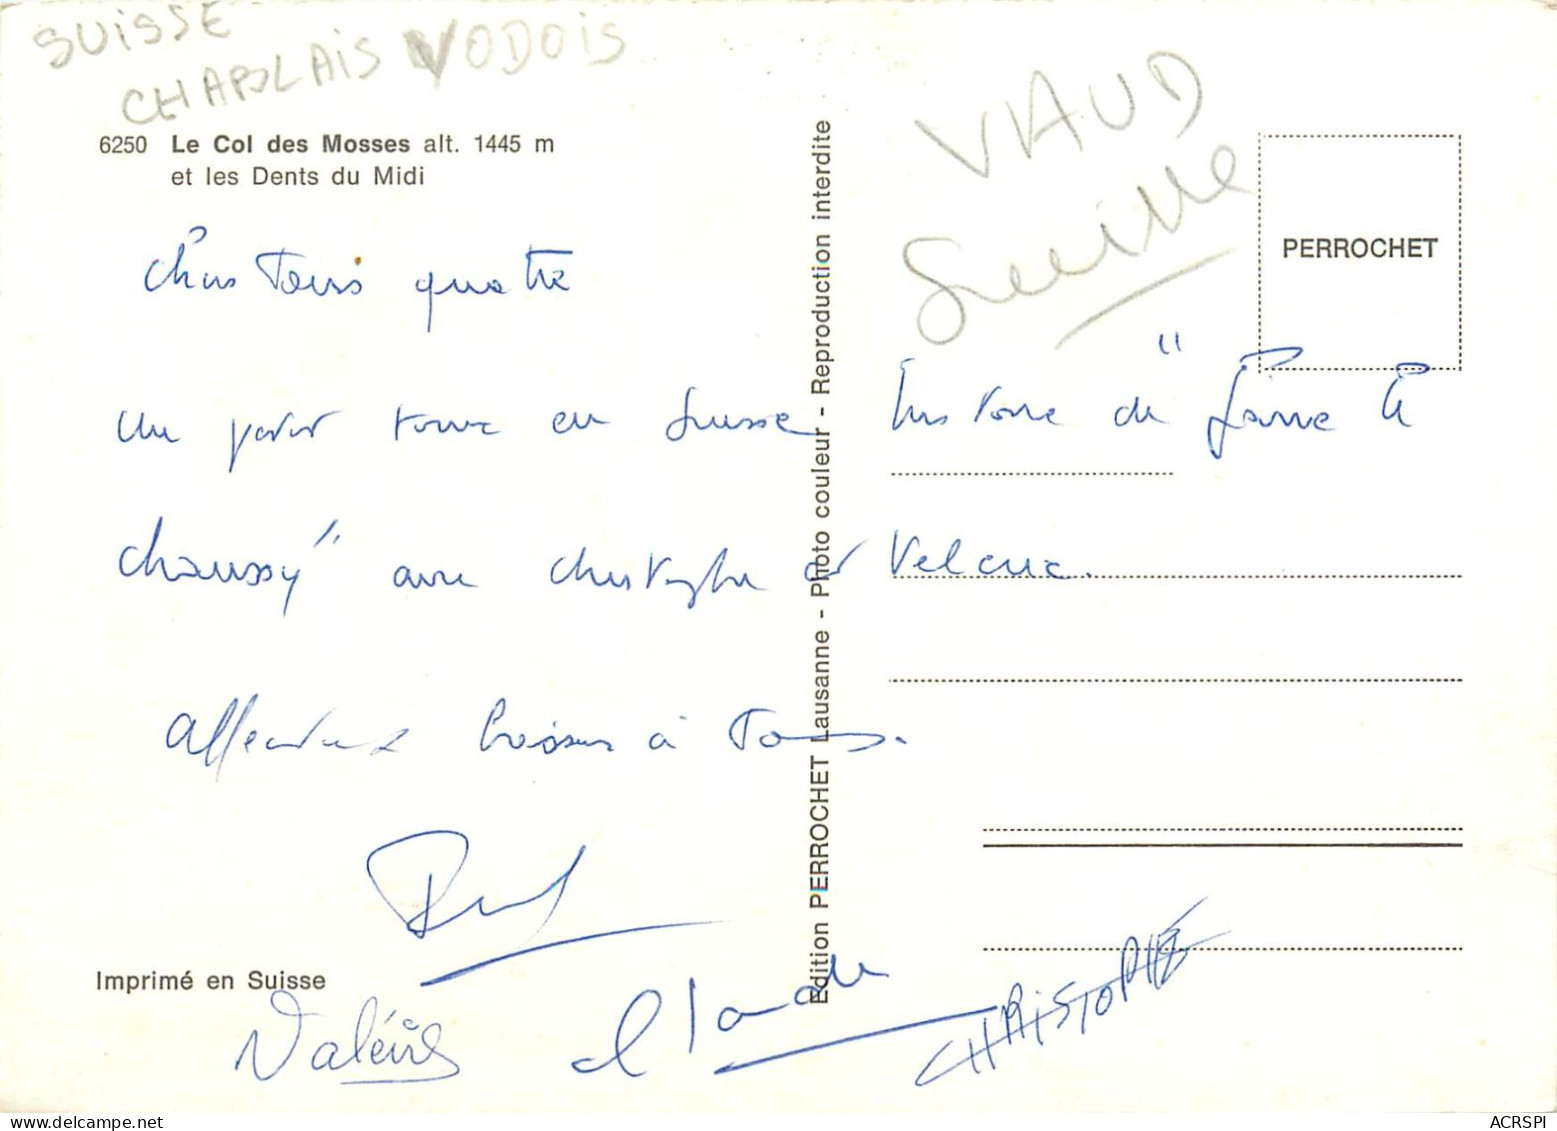 SUISSE
CHABLAIS VODOIS
VAUD
Suisse
6250 Le Col des Mosses alt. 1445 m
et les Dents du Midi
PERROCHET
Chers Tous quatre
Un petit tour en Suisse histoire de "faire le
chaussy" avec christophe et Valerie.
Affectueux baisers à Tous.
Edition PERROCHET Lausanne - Photo couleur - Reproduction interdite
Imprimé en Suisse
Valérie
Claude
CHRISTOPHE
ACRSPI